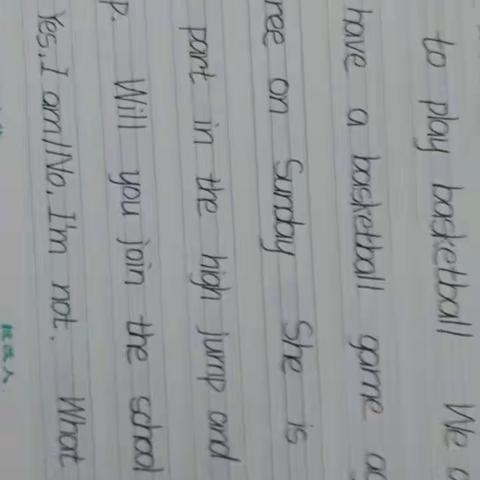 to play basketball We
have a basketball game ag
ree on Sunday She is
part in the high jump and
p. Will you join the school
Yes, I am/No, I'm not. What